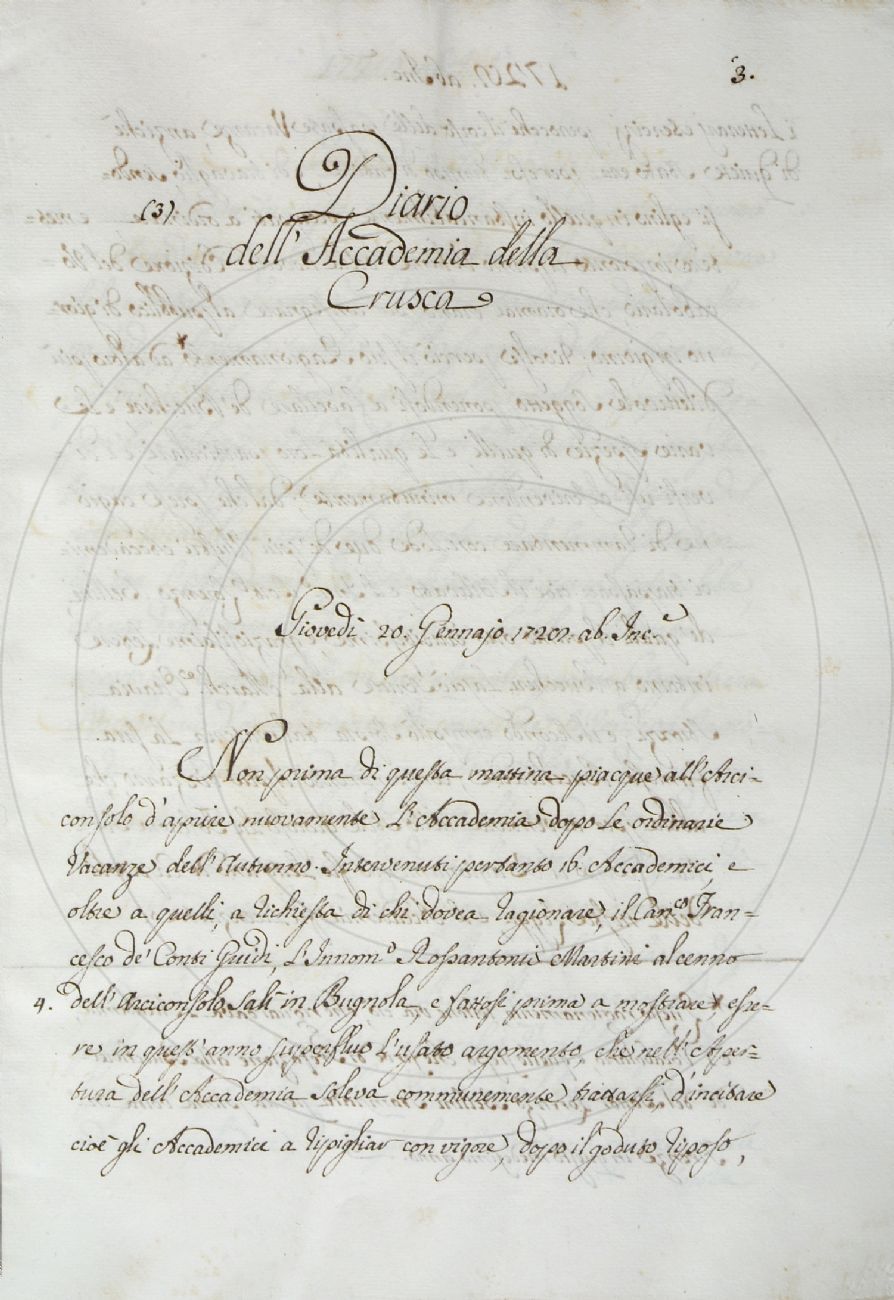 3.
(3) Diario
dell' Accademia della
Crusca
Giovedì 20. Gennajo 1720. ab. Inc.e
Non prima di questa mattina piacque all' Arci=
consolo d'aprire nuovamente l'Accademia dopo le ordinarie
Vacanze dell' Autunno. Intervenuti pertanto 16. Accademici, e
oltre a quelli, a richiesta di chi dovea ragionare, il Can.co Fran=
cesco de' Conti Guidi, l'Innom.o Rossantonio Martini al cenno
4. dell' Arciconsolo salì in Bugnola, e fattosi prima a mostrare esse=
re in quest' anno superfluo l'usato argomento, che nell' Aper=
tura dell' Accademia soleva communemente trattarsi, d'incitare
cioè gli Accademici a ripigliar con vigore, dopo il goduto riposo,